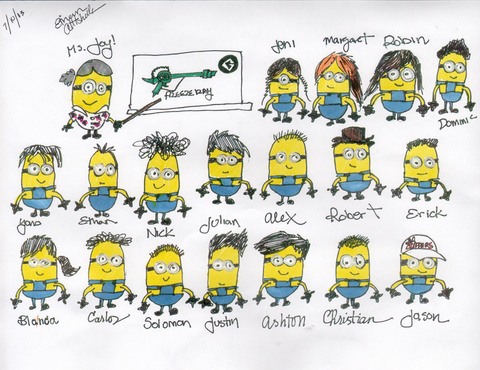 7/10/13
Ms. Joy!
G
FREEZE RAY
Joni
margaret
Robin
Dominic
Jana
Ethan
Nick
Julian
Alex
Robert
Erick
Blanca
Carlos
Solomon
Justin
Ashton
Christian
Jason